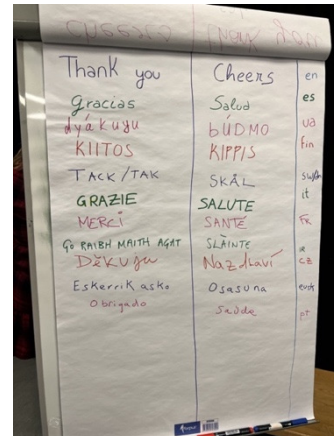 Thank you Cheers en
Gracias Salud es
dyákuyu BÚDMO ua
KIITOS KIPPIS fin
TACK/TAK SKÅL
GRAZIE SALUTE it
MERCi SANTÉ FR
Go RAIBH MAITH AGAT SLÁINTE
Děkuju Na zdraví CZ
Eskerrik asko Osasuna eusk
Obrigado Saúde PT